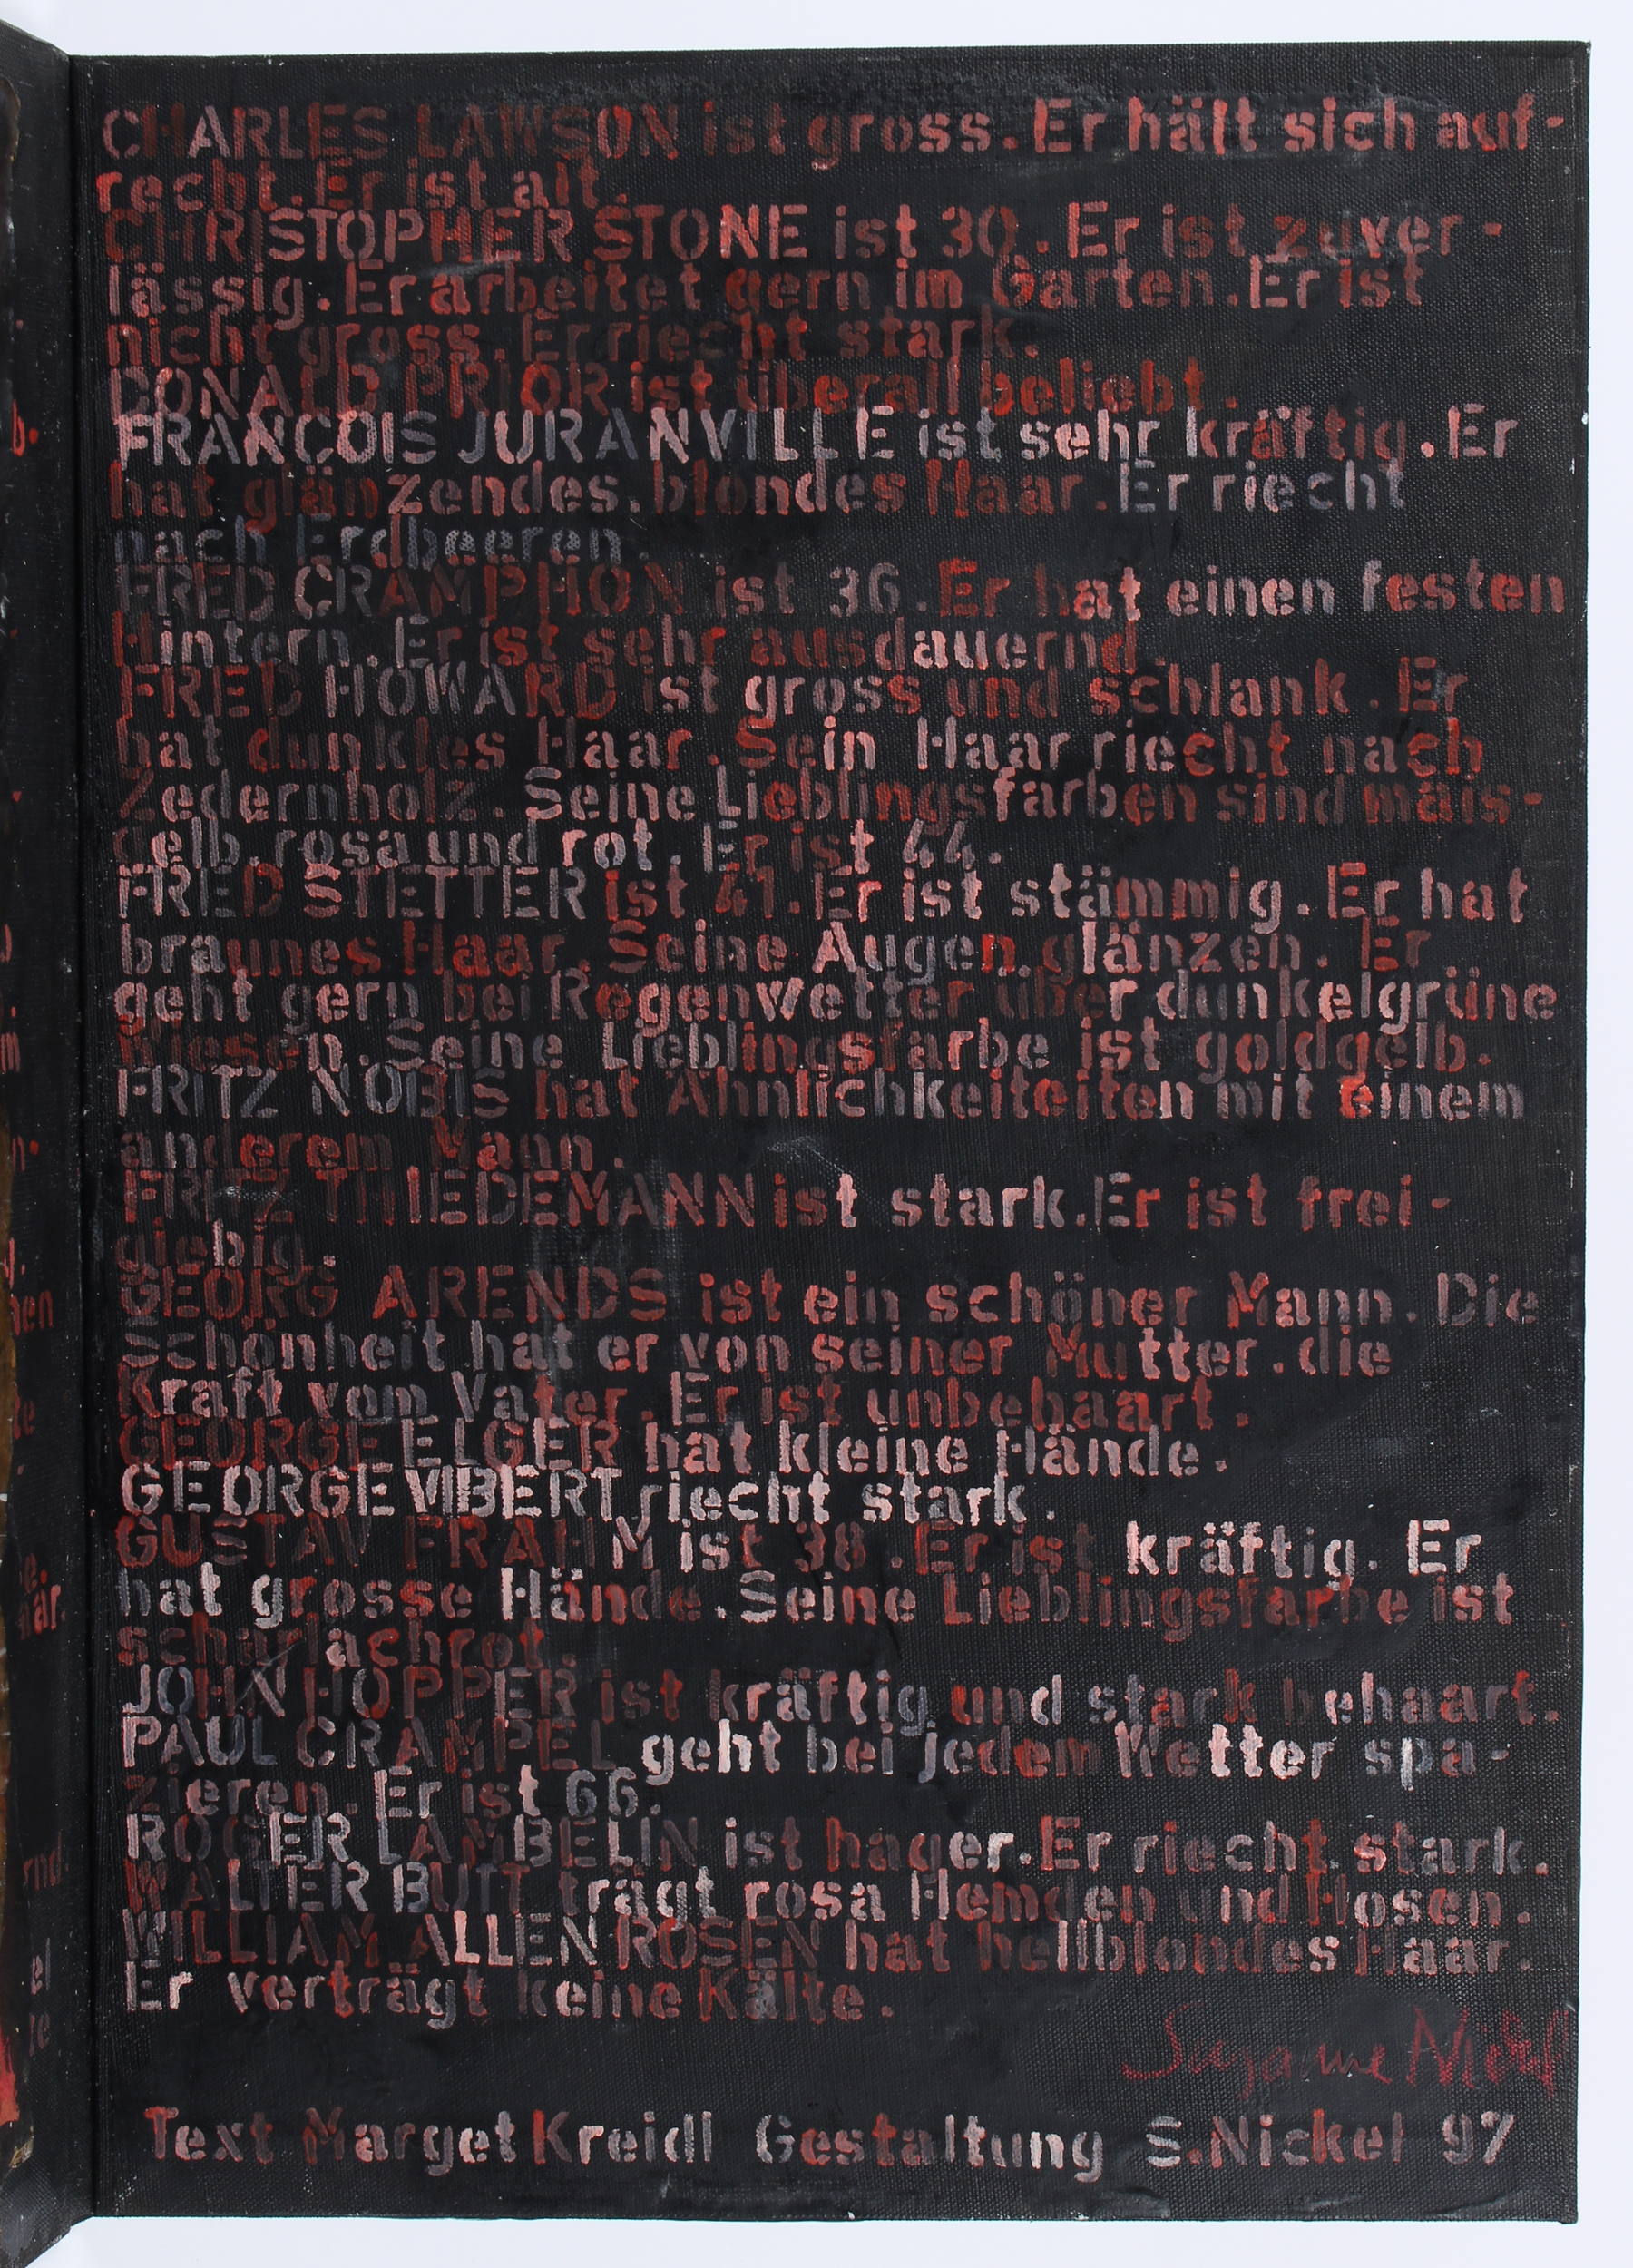 CHARLES LAWSON ist gross. Er hält sich auf-
recht. Er ist alt.
CHRISTOPHER STONE ist 30. Er ist zuver-
lässig. Er arbeitet gern im Garten. Er ist
nicht gross. Er riecht stark.
DONALD PRIOR ist überall beliebt.
FRANÇOIS JURANVILLE ist sehr kräftig. Er
hat glänzendes, blondes Haar. Er riecht
nach Erdbeeren.
FRED CRAMPHON ist 36. Er hat einen festen
Hintern. Er ist sehr ausdauernd.
FRED HOWARD ist gross und schlank. Er
hat dunkles Haar. Sein Haar riecht nach
Zedernholz. Seine Lieblingsfarben sind mais-
gelb, rosa und rot. Er ist 44.
FRED STETTER ist 41. Er ist stämmig. Er hat
braunes Haar. Seine Augen glänzen. Er
geht gern bei Regenwetter über dunkelgrüne
Wiesen. Seine Lieblingsfarbe ist goldgelb.
FRITZ NOBIS hat Ähnlichkeiteiten mit einem
anderem Mann.
FRITZ THIEDEMANN ist stark. Er ist frei-
giebig.
GEORG ARENDS ist ein schöner Mann. Die
Schönheit hat er von seiner Mutter, die
Kraft vom Vater. Er ist unbehaart.
GEORGE ELGER hat kleine Hände.
GEORGE VIBERT riecht stark.
GUSTAV FRAHM ist 38. Er ist kräftig. Er
hat grosse Hände. Seine Lieblingsfarbe ist
scharlachrot.
JOHN HOPPER ist kräftig und stark behaart.
PAUL CRAMPEL geht bei jedem Wetter spa-
zieren. Er ist 66.
ROGER LAMBELIN ist hager. Er riecht stark.
WALTER BUTT trägt rosa Hemden und Hosen.
WILLIAM ALLEN ROSEN hat hellblondes Haar.
Er verträgt keine Kälte.
Suzanne Nickel
Text Marget Kreidl Gestaltung S. Nickel 97